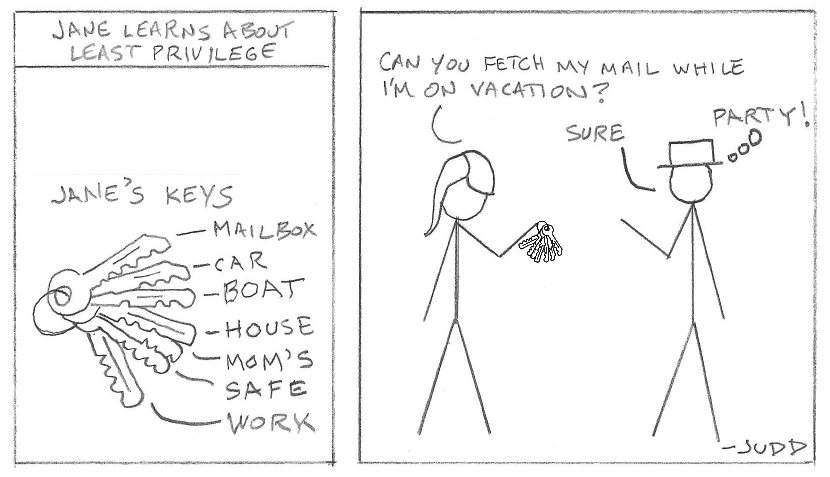 JANE LEARNS ABOUT
LEAST PRIVILEGE
JANE'S KEYS
MAILBOX
CAR
BOAT
HOUSE
MOM'S
SAFE
WORK
CAN YOU FETCH MY MAIL WHILE
I'M ON VACATION?
SURE
PARTY!
-JUDD